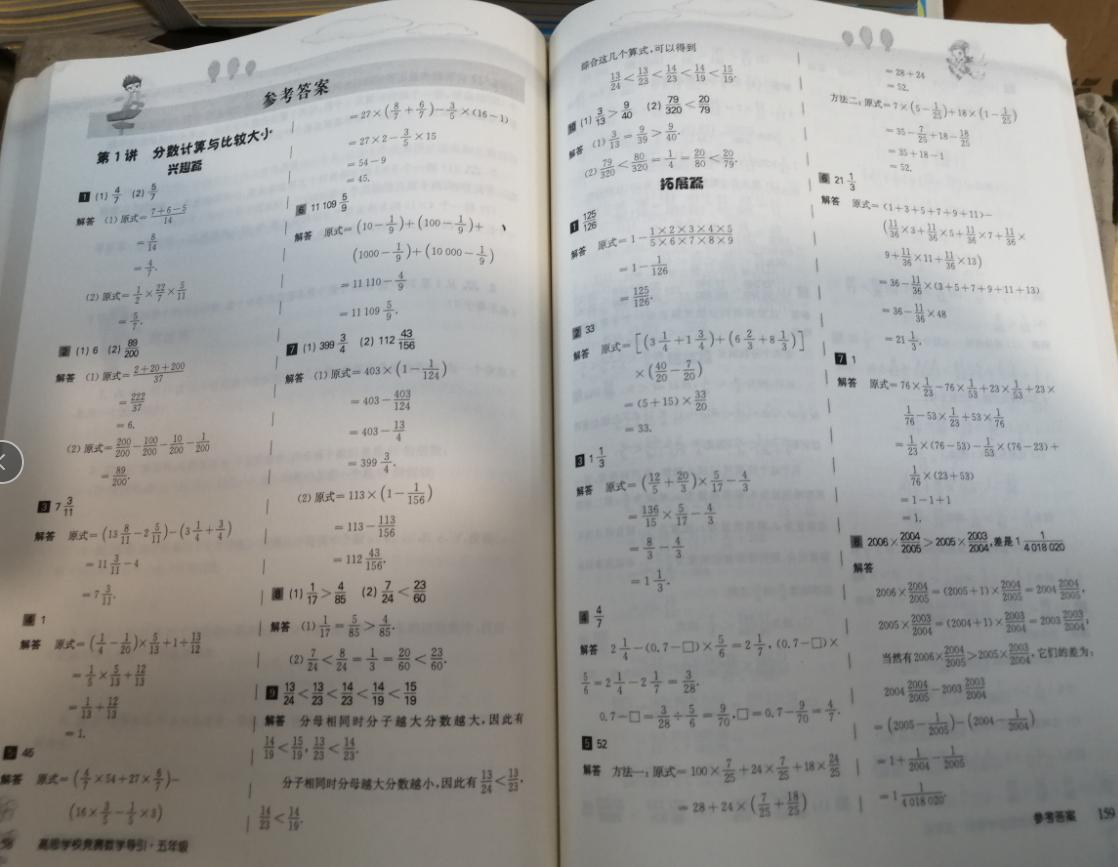 参考答案
第1讲 分数计算与比较大小
兴趣篇
1 (1) 4/7 (2) 5/7
解答 (1)原式=(7+6-5)/14
=8/14
=4/7.
(2)原式=1/2×22/7×5/11
=5/7.
2 (1) 6 (2) 89/200
解答 (1)原式=(2+20+200)/37
=222/37
=6.
(2)原式=200/200-100/200-10/200-1/200
=89/200.
3 7 3/11
解答 原式=(13 8/11-2 5/11)-(3 1/4+3/4)
=11 3/11-4
=7 3/11.
4 1
解答 原式=(1/4-1/20)×5/13+1÷13/12
=1/5×5/13+12/13
=1/13+12/13
=1.
5 45
解答 原式=(4/7×54+27×6/7)-
(16×3/5-1/5×3)
高思学校竞赛数学导引·五年级
=27×(8/7+6/7)-3/5×(16-1)
=27×2-3/5×15
=54-9
=45.
6 11 109 5/9
解答 原式=(10-1/9)+(100-1/9)+
(1000-1/9)+(10 000-1/9)
=11 110-4/9
=11 109 5/9.
7 (1) 399 3/4 (2) 112 43/156
解答 (1)原式=403×(1-1/124)
=403-403/124
=403-13/4
=399 3/4.
(2)原式=113×(1-1/156)
=113-113/156
=112 43/156.
8 (1) 1/17>4/85 (2) 7/24<23/60
解答 (1) 1/17=5/85>4/85.
(2) 7/24<8/24=1/3=20/60<23/60.
9 13/24<13/23<14/23<14/19<15/19
解答 分母相同时分子越大分数越大,因此有
14/19<15/19,13/23<14/23.
分子相同时分母越大分数越小,因此有13/24<13/23,
14/23<14/19.
综合这几个算式,可以得到
13/24<13/23<14/23<14/19<15/19.
10 (1) 3/13>9/40 (2) 79/320<20/79
解答 (1) 3/13=9/39>9/40.
(2) 79/320<80/320=1/4=20/80<20/79.
拓展篇
1 125/126
解答 原式=1-(1×2×3×4×5)/(5×6×7×8×9)
=1-1/126
=125/126.
2 33
解答 原式=[(3 1/4+1 3/4)+(6 2/3+8 1/3)]
×(40/20-7/20)
=(5+15)×33/20
=33.
3 1 1/3
解答 原式=(12/5+20/3)×5/17-4/3
=136/15×5/17-4/3
=8/3-4/3
=1 1/3.
4 4/7
解答 2 1/4-(0.7-□)×5/6=2 1/7,(0.7-□)×
5/6=2 1/4-2 1/7=3/28.
0.7-□=3/28÷5/6=9/70,□=0.7-9/70=4/7.
5 52
解答 方法一:原式=100×7/25+24×7/25+18×24/25
=28+24×(7/25+18/25)
=28+24
=52.
方法二:原式=7×(5-1/25)+18×(1-1/25)
=35-7/25+18-18/25
=35+18-1
=52.
6 21 1/3
解答 原式=(1+3+5+7+9+11)-
(11/36×3+11/36×5+11/36×7+11/36×
9+11/36×11+11/36×13)
=36-11/36×(3+5+7+9+11+13)
=36-11/36×48
=21 1/3.
7 1
解答 原式=76×1/23-76×1/53+23×1/53+23×
1/76-53×1/23+53×1/76
=1/23×(76-53)-1/53×(76-23)+
1/76×(23+53)
=1-1+1
=1.
8 2006×2004/2005>2005×2003/2004,差是1 1/4 018 020
解答
2006×2004/2005=(2005+1)×2004/2005=2004 2004/2005,
2005×2003/2004=(2004+1)×2003/2004=2003 2003/2004,
当然有2006×2004/2005>2005×2003/2004,它们的差为:
2004 2004/2005-2003 2003/2004
=(2005-1/2005)-(2004-1/2004)
=1+1/2004-1/2005
=1 1/4 018 020.
参考答案 159